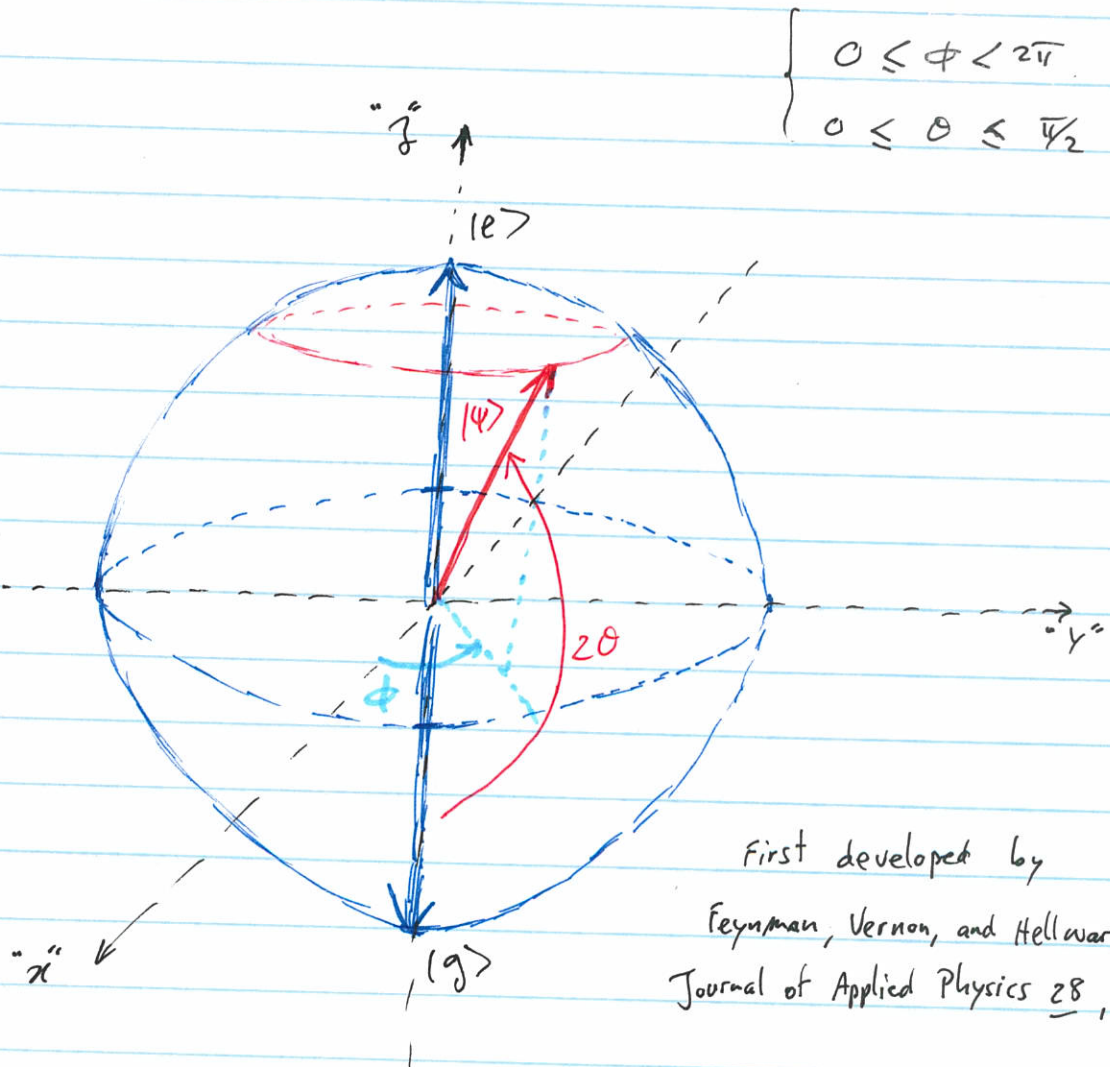 0 ≤ ϕ < 2π
0 ≤ θ ≤ π/2
"z"
|e>
|ψ>
"y"
2θ
ϕ
First developed by
Feynman, Vernon, and Hellwar
"x"
|g>
Journal of Applied Physics 28,